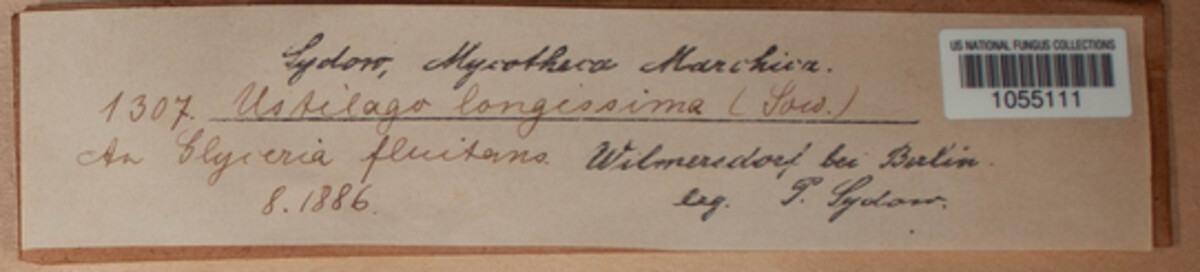 Sydow, Mycotheca Marchica.
US NATIONAL FUNGUS COLLECTIONS
1055111
1307. Ustilago longissima (Sow.)
An Glyceria fluitans. Wilmersdorf bei Berlin.
8.1886. leg. P. Sydow.